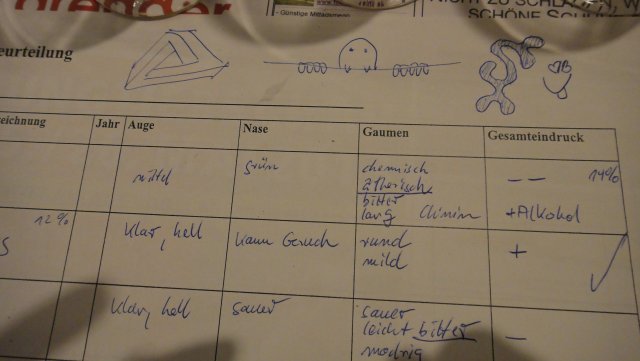 - Günstige Mittagsmenü
NICHT ZU SCHLA
SCHÖNE SCHU
eurteilung
eichnung Jahr Auge Nase Gaumen Gesamteindruck
mittel grün chemisch -- 14%
ätherisch
bitter
lang +Alkohol
12%
klar, hell kaum Geruch rund +
mild
klar, hell sauer sauer -
leicht bitter
modrig